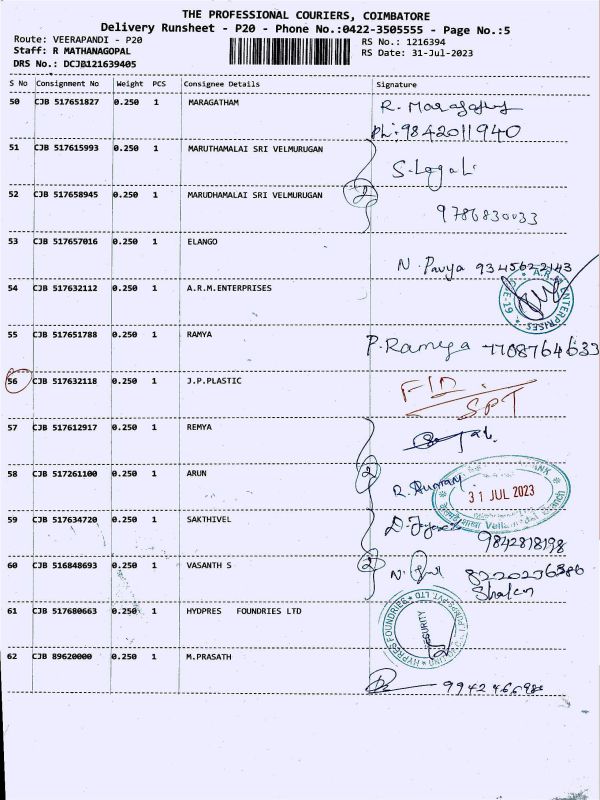 THE PROFESSIONAL COURIERS, COIMBATORE
Delivery Runsheet - P20 - Phone No.:0422-3505555 - Page No.:5
Route: VEERAPANDI - P20
RS No.: 1216394
Staff: R MATHANAGOPAL
RS Date: 31-Jul-2023
DRS No.: DCJB121639405
S No Consignment No Weight PCS Consignee Details Signature
50 CJB 517651827 0.250 1 MARAGATHAM
Ph: 9842011940
51 CJB 517615993 0.250 1 MARUTHAMALAI SRI VELMURUGAN
2
52 CJB 517658945 0.250 1 MARUDHAMALAI SRI VELMURUGAN
9786830033
53 CJB 517657016 0.250 1 ELANGO
9345622143
54 CJB 517632112 0.250 1 A.R.M.ENTERPRISES
55 CJB 517651788 0.250 1 RAMYA P.Ramya 7708764633
56 CJB 517632118 0.250 1 J.P.PLASTIC
57 CJB 517612917 0.250 1 REMYA
58 CJB 517261100 0.250 1 ARUN 2
31 JUL 2023
59 CJB 517634720 0.250 1 SAKTHIVEL
9842818198
60 CJB 516848693 0.250 1 VASANTH S 2
61 CJB 517680663 0.250 1 HYDPRES FOUNDRIES LTD
SECURITY
62 CJB 89620000 0.250 1 M.PRASATH